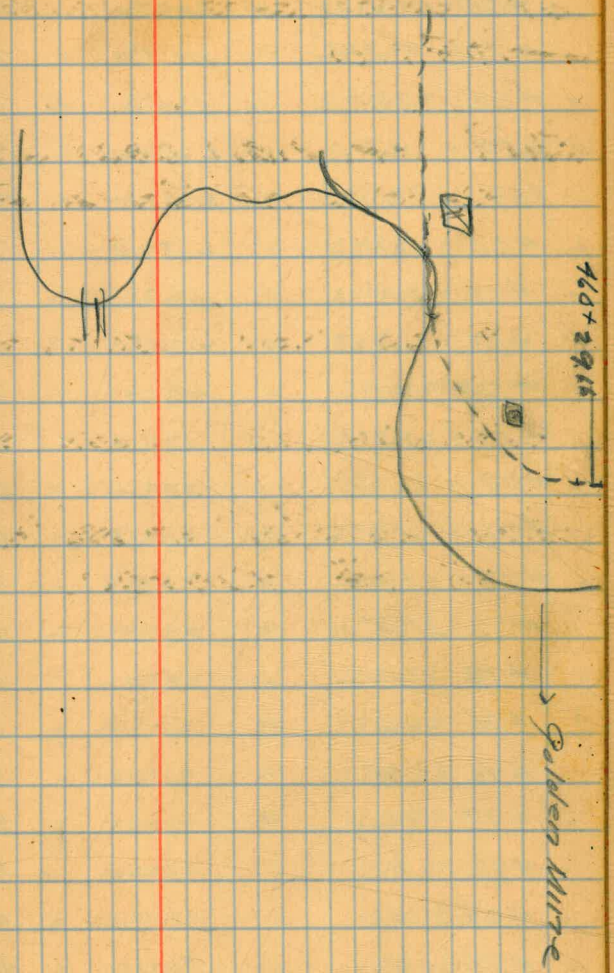 460+29.18
→ Golden Mine